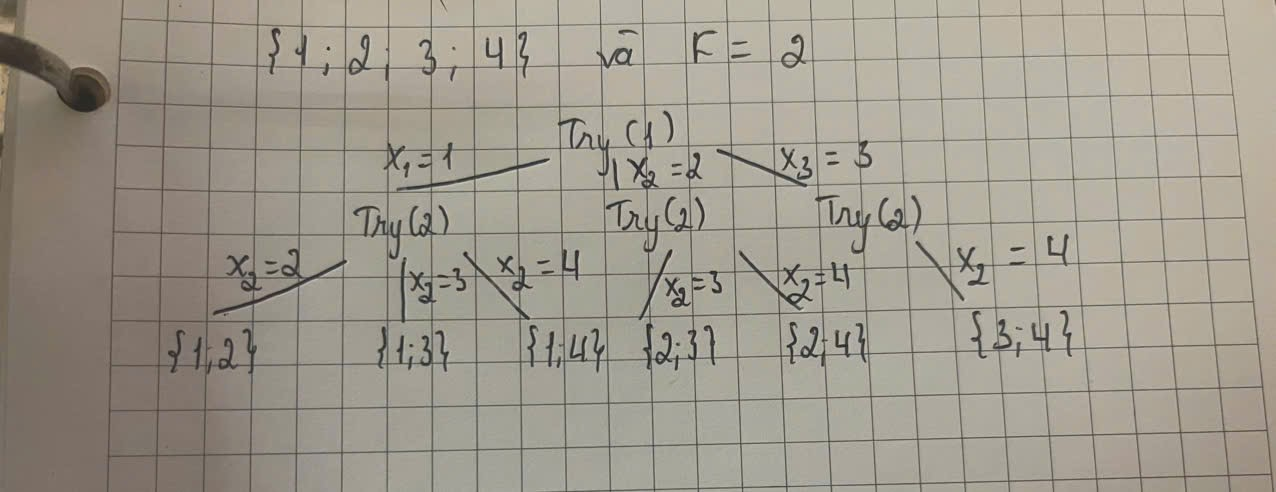 {1; 2; 3; 4} và K = 2
Try(1)
x₁=1 x₂=2 x₃=3
Try(2) Try(2) Try(2)
x₂=2 x₂=3 x₂=4 x₂=3 x₂=4 x₂=4
{1;2} {1;3} {1;4} {2;3} {2;4} {3;4}